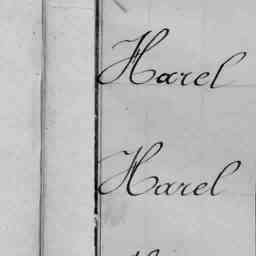 Harel
Harel